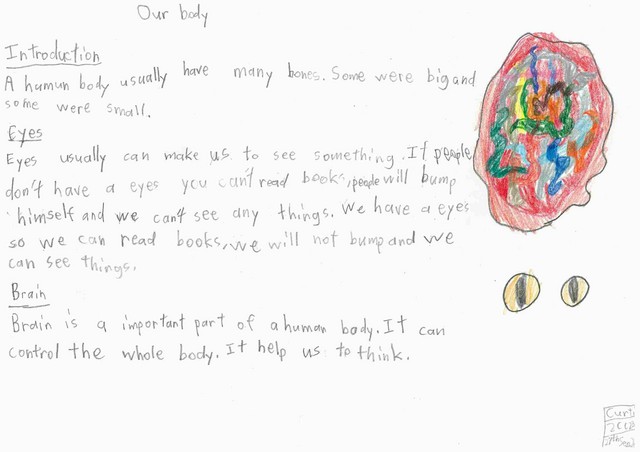 Our body
Introduction
A human body usually have many bones. Some were big and
some were small.
Eyes
Eyes usually can make us to see something. If people
don't have a eyes you can't read books, people will bump
himself and we can't see any things. We have a eyes
so we can read books, we will not bump and we
can see things.
Brain
Brain is a important part of a human body. It can
control the whole body. It help us to think.